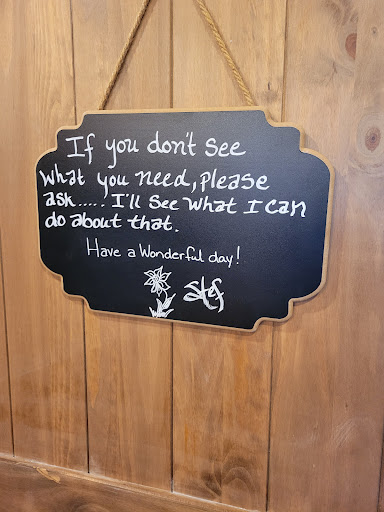 If you don't see
What you need, please
ask..... I'll see what I can
do about that.
Have a Wonderful day!
Stef